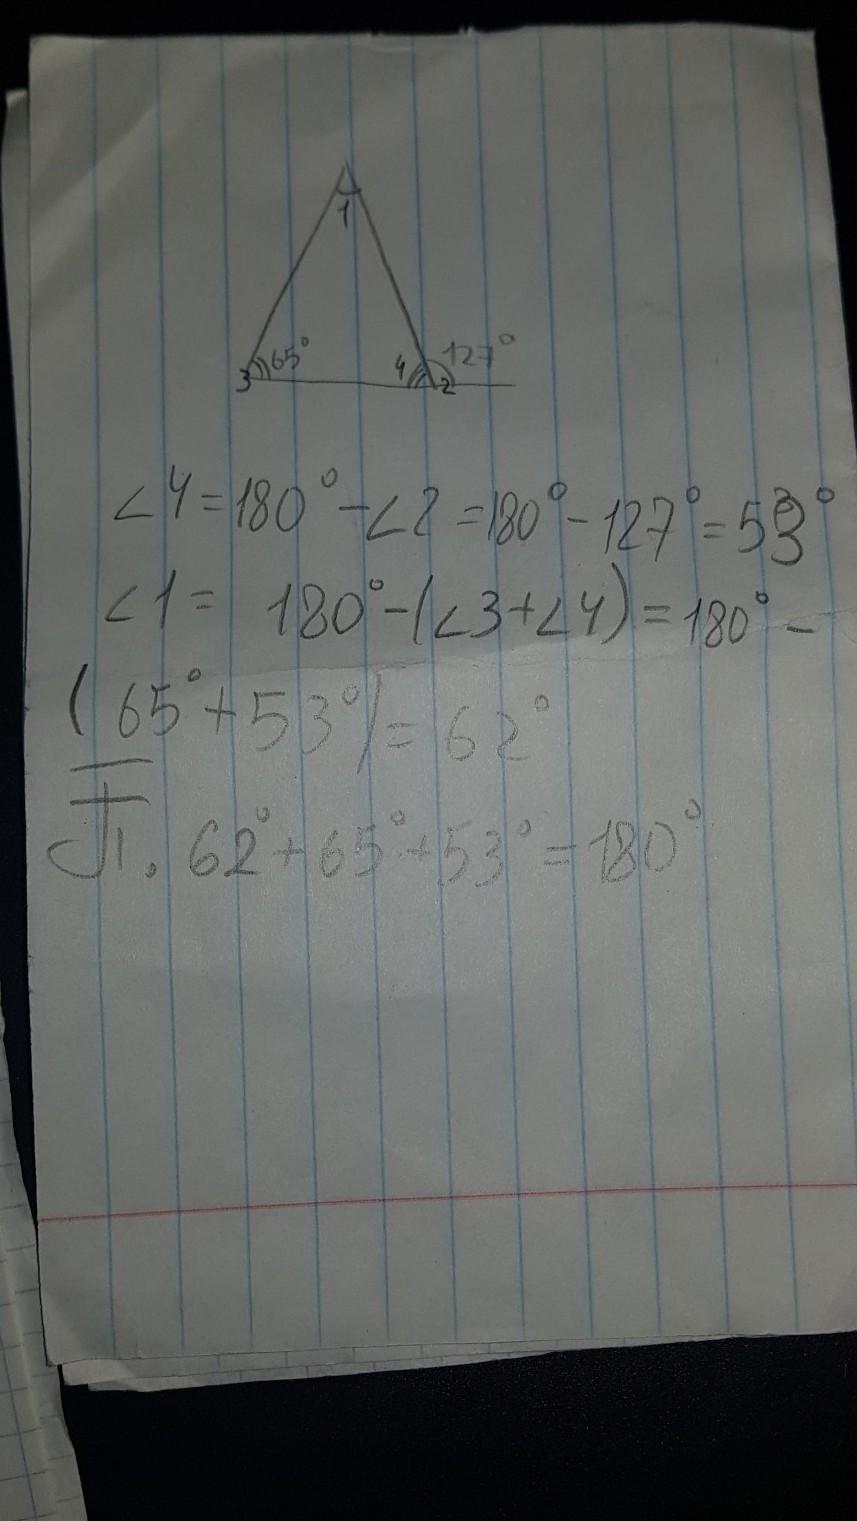 1
65°
127°
3
4
2
∠4=180°-∠2=180°-127°=53°
∠1= 180°-(∠3+∠4)=180°-
(65°+53°)=62°
П. 62°+65°+53°=180°